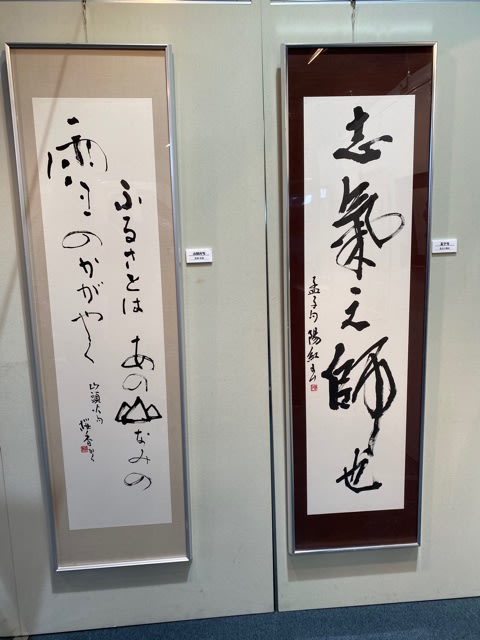 ふるさとは あの山なみの
雪のかがやく
山頭火句
志氣之師也
孟子句 陽紅
山頭火句
孟子句